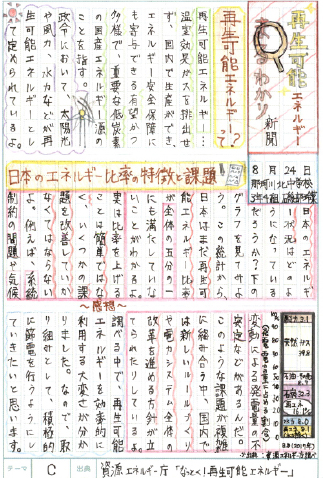 再生可能
エネルギー
まるわかり
新聞
8月24日
那珂川北中学校
再生可能エネルギーって？
再生可能エネルギー…
温室効果ガスを排出せ
ず、国内で生産ができ、
エネルギー安全保障に
も寄与できる有望かつ
多様で、重要な低炭素
の国産エネルギー源の
ことを指す。
政令において、太陽光
や風力、水力などが再
生可能エネルギーとし
て定められているよ。
日本のエネルギー比率の特徴と課題
日本のエネルギー
比率の状況はどのよ
うになっている
だろうか？下の
グラフを見てみよ
う。この統計から、
日本はまだ再生可
能エネルギー比率
が全体の五分の一
にも満たしていな
いことがわかるね。
実は比率を上げる
ことは簡単ではな
く、いくつかの課
題を改善していか
なくてはならない
よ。例えば、系統
制約の問題、気候
変動による発電量の不
安定などがあるんだ。
このような課題が複雑
に組み合う中、国内で
は新しいルールづくり
や電力システム全体の
改革を進める方針が立
てられたりしているよ。
～感想～
調べる中で、再生可能
エネルギーを効率的に
利用する大変さが分か
りました。なので、取
り組みとして、積極的
に節電を行うようにし
ていきたいと思います。
天然ガス
39.8
テーマ
C
出典
資源エネルギー庁「なっとく！再生可能エネルギー」